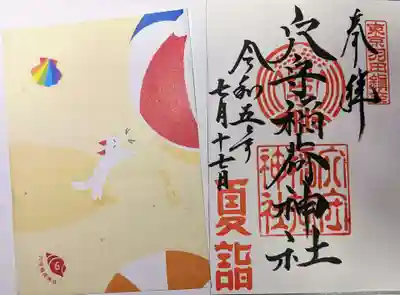 東京羽田鎮座
奉拝
穴守稲荷神社
令和五年
七月十七日
夏詣
6